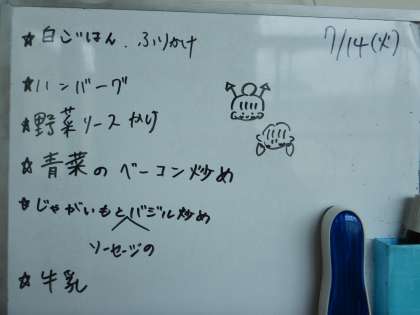 7/14(火)
★白ごはん、ふりかけ
★ハンバーグ
★野菜ソースがけ
★青菜のベーコン炒め
★じゃがいもとバジル炒め
ソーセージの
★牛乳